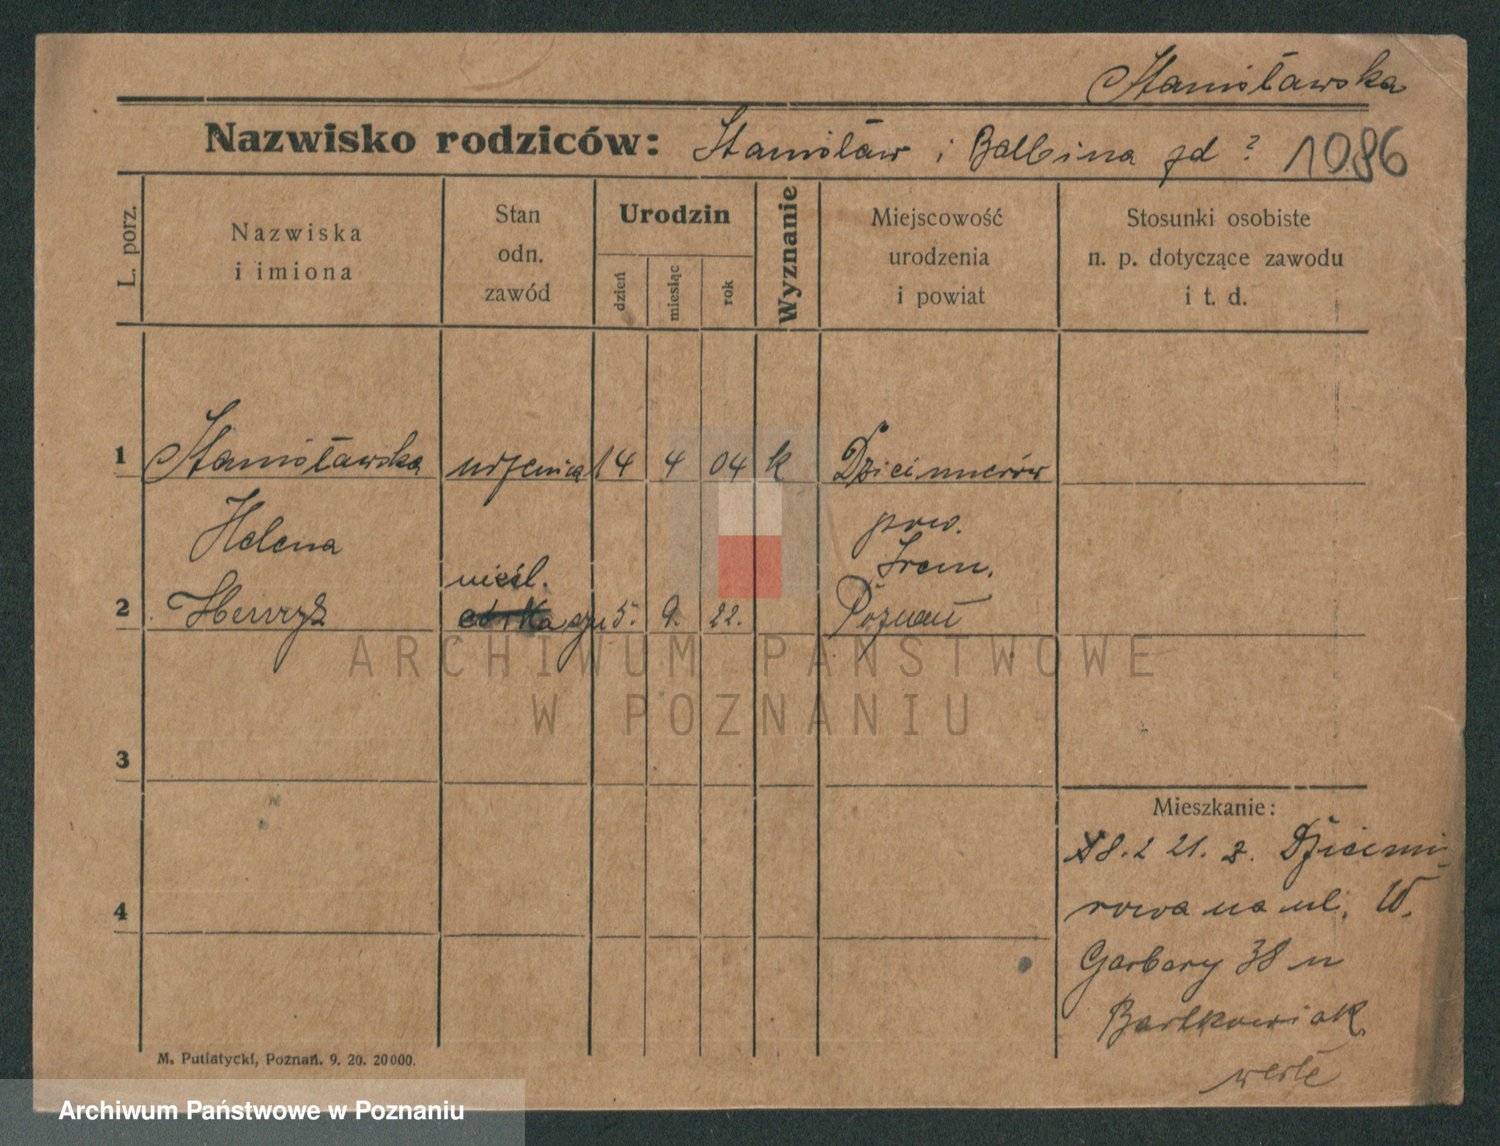 Stanisławska
Nazwisko rodziców: Stanisław i Balbina zd ? 1086
L. porz.
Nazwiska
i imiona
Stan
odn.
zawód
Urodzin
dzień
miesiąc
rok
Wyznanie
Miejscowość
urodzenia
i powiat
Stosunki osobiste
n. p. dotyczące zawodu
i t. d.
1 Stanisławska 14 4 04 k
Helena
pow.
Śrem.
nieśl.
2 Henryk 5. 9. 22. Poznań
ARCHIWUM PAŃSTWOWE
W POZNANIU
3
Mieszkanie:
18.2 21. z. Dziećmi-
rowa na ul. W.
4
Garbary 38 u
Bartkowiak
M. Putiatycki, Poznań. 9. 20. 20000.
Archiwum Państwowe w Poznaniu